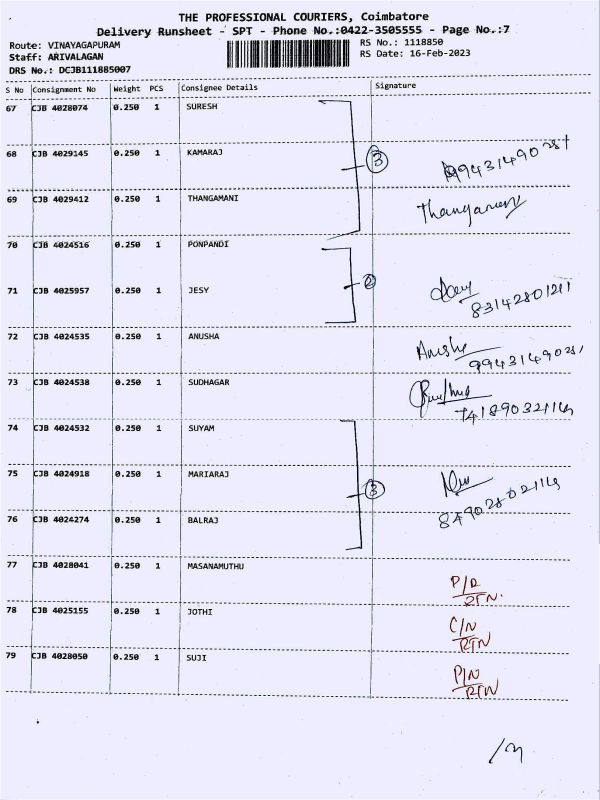 THE PROFESSIONAL COURIERS, Coimbatore
Delivery Runsheet - SPT - Phone No.:0422-3505555 - Page No.:7
Route: VINAYAGAPURAM RS No.: 1118850
Staff: ARIVALAGAN RS Date: 16-Feb-2023
DRS No.: DCJB111885007
S No Consignment No Weight PCS Consignee Details Signature
67 CJB 4028074 0.250 1 SURESH
68 CJB 4029145 0.250 1 KAMARAJ 3
69 CJB 4029412 0.250 1 THANGAMANI
70 CJB 4024516 0.250 1 PONPANDI
71 CJB 4025957 0.250 1 JESY 2
72 CJB 4024535 0.250 1 ANUSHA Anusha
73 CJB 4024538 0.250 1 SUDHAGAR
74 CJB 4024532 0.250 1 SUYAM
75 CJB 4024918 0.250 1 MARIARAJ 3
76 CJB 4024274 0.250 1 BALRAJ
77 CJB 4028041 0.250 1 MASANAMUTHU
RTN.
78 CJB 4025155 0.250 1 JOTHI C/N
RTN
79 CJB 4028050 0.250 1 SUJI P/N
RTN